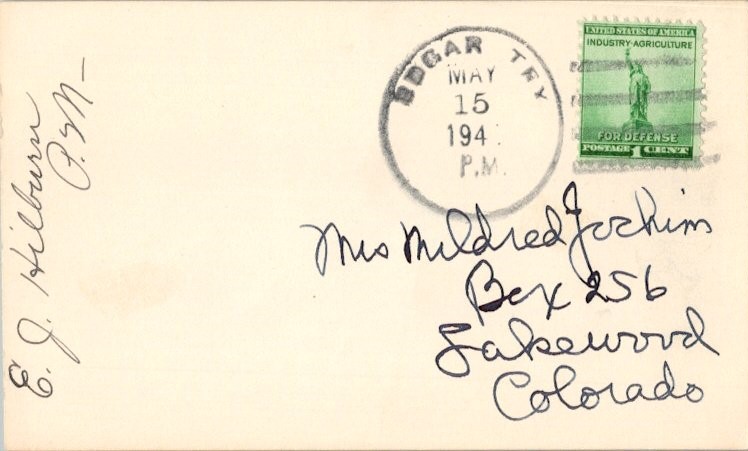 EDGAR TEX
MAY
15
194
P.M.
UNITED STATES OF AMERICA
INDUSTRY·AGRICULTURE
FOR DEFENSE
POSTAGE 1 CENT
Mrs Mildred Jochim
Box 256
Lakewood
Colorado
E. J. Hilburn
P.M—